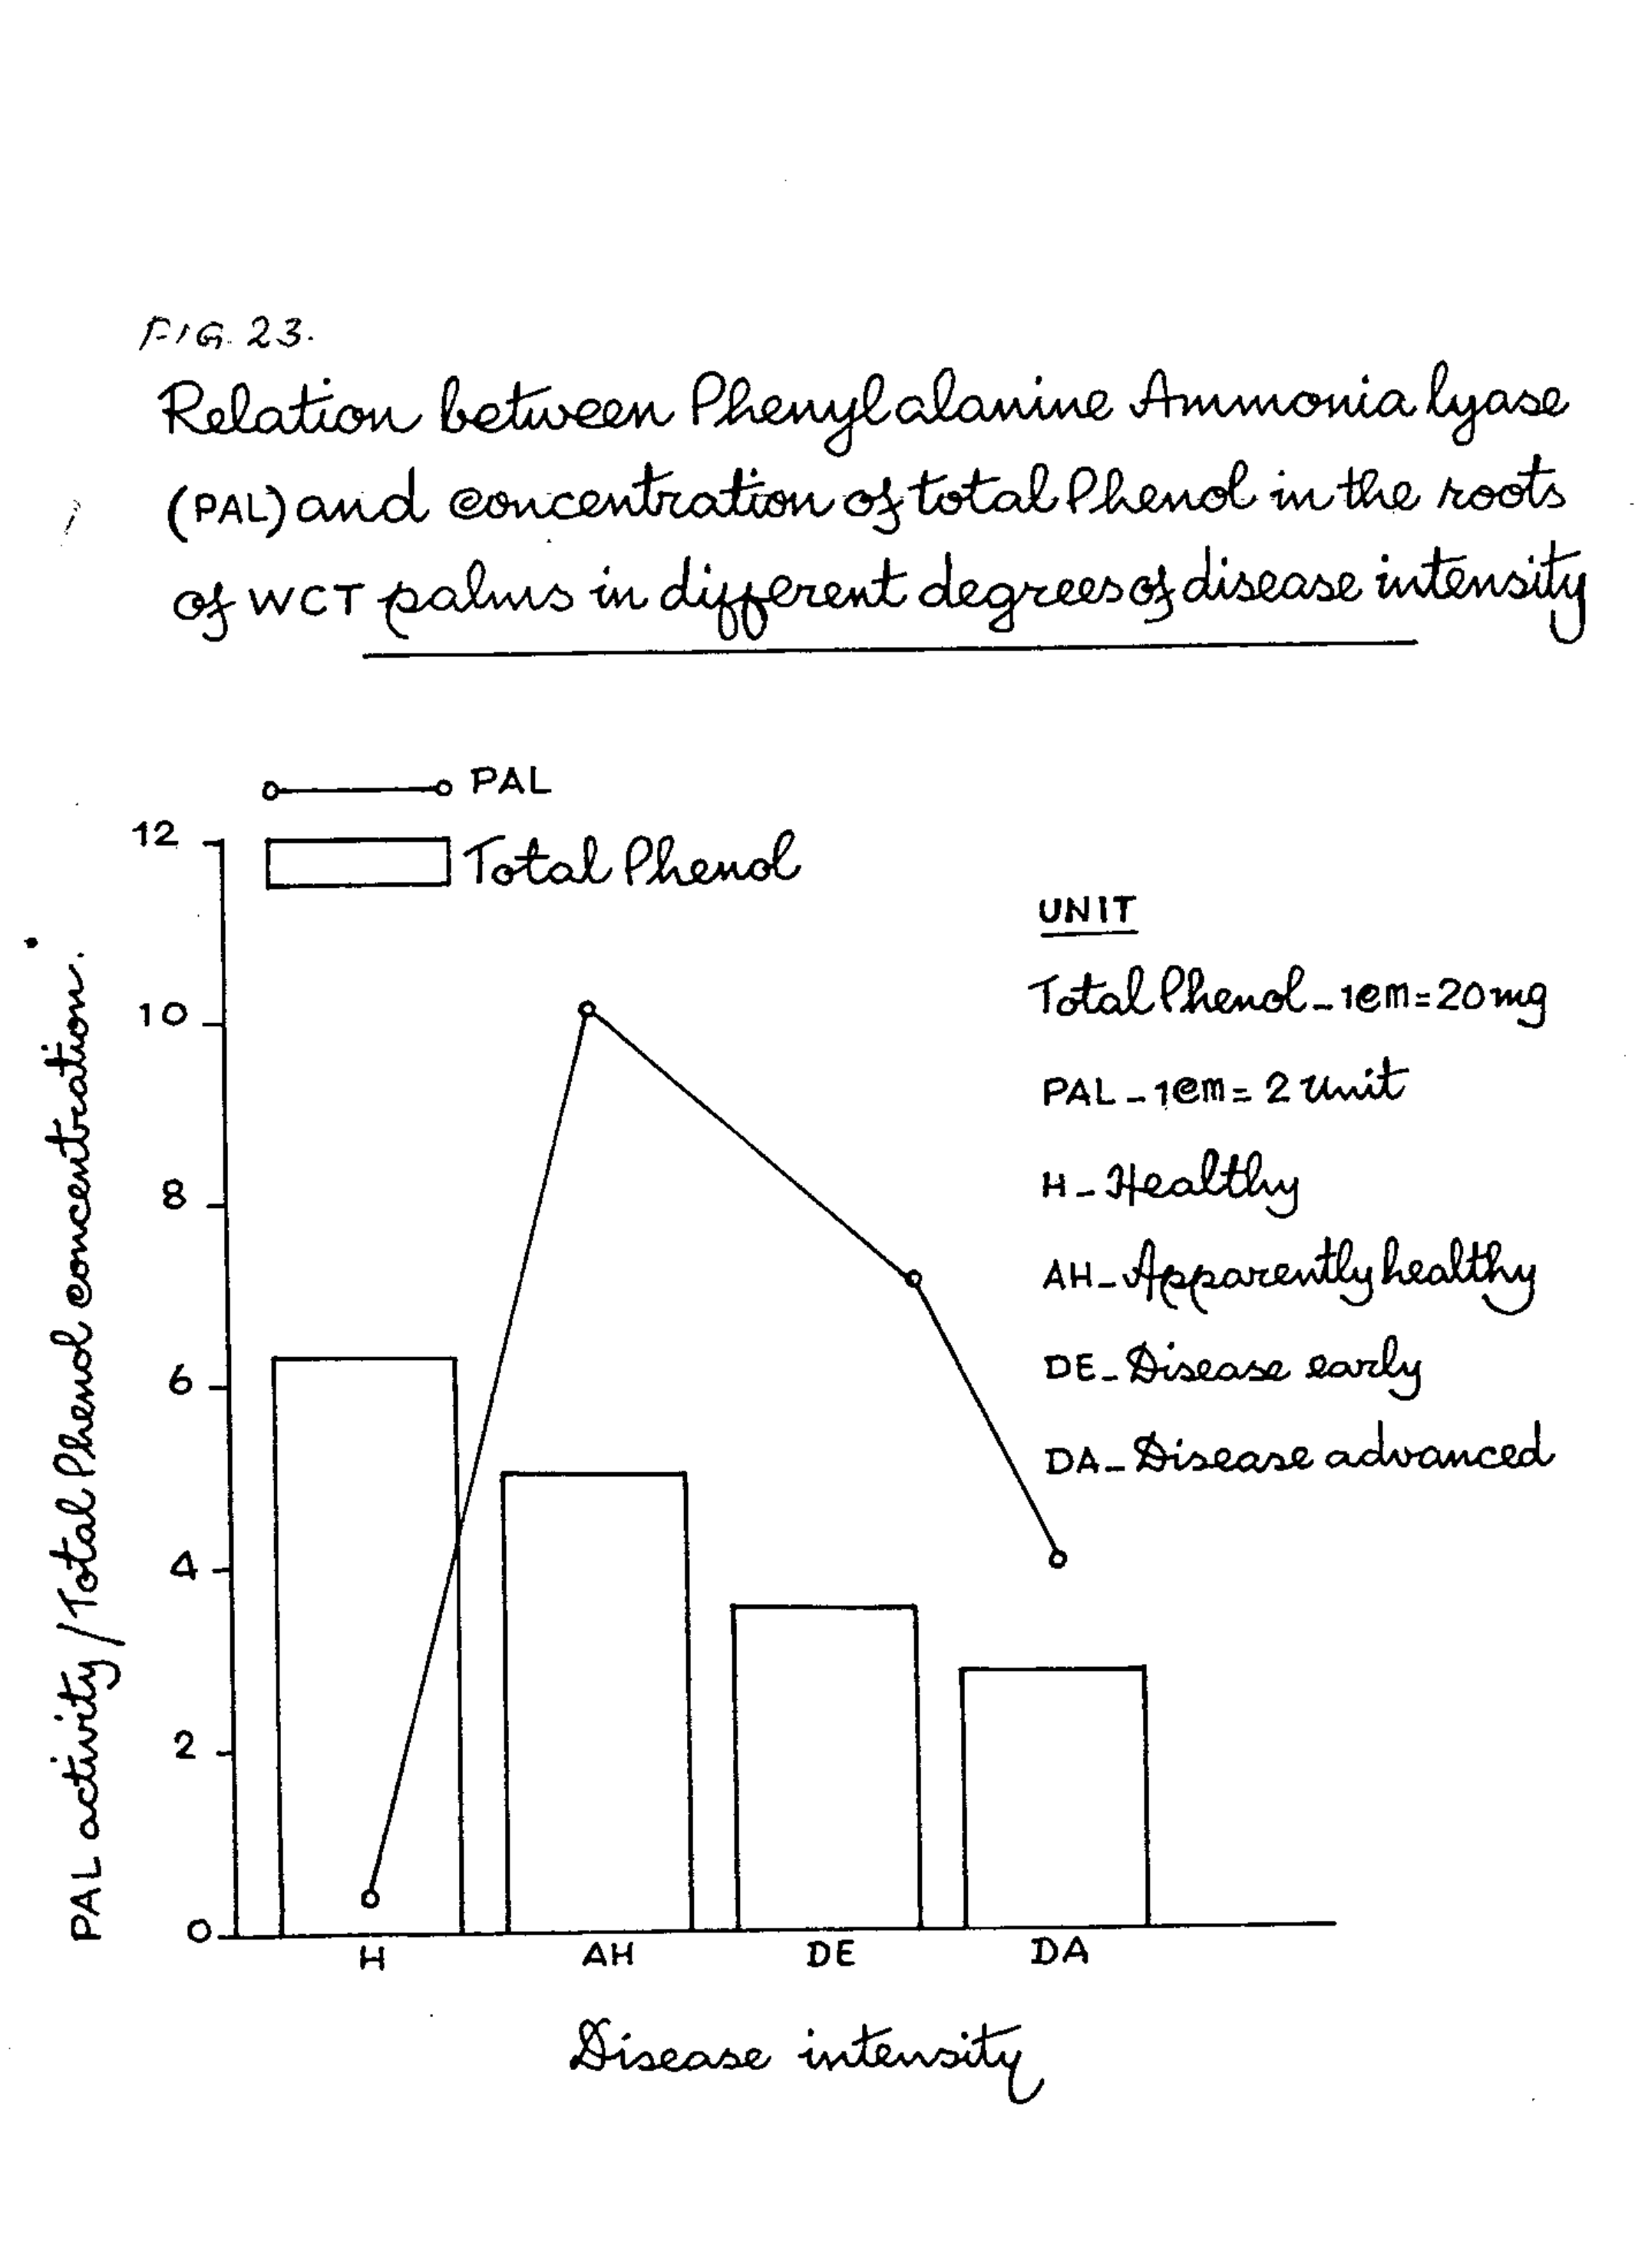 FIG. 23.
Relation between Phenylalanine Ammonia lyase
(PAL) and concentration of total Phenol in the roots
of WCT palms in different degrees of disease intensity
PAL
Total Phenol
UNIT
Total Phenol - 1cm = 20 mg
PAL - 1cm = 2 unit
H - Healthy
AH - Apparently healthy
DE - Disease early
DA - Disease advanced
PAL activity / Total Phenol concentration.
12
10
8
6
4
2
0
H AH DE DA
Disease intensity